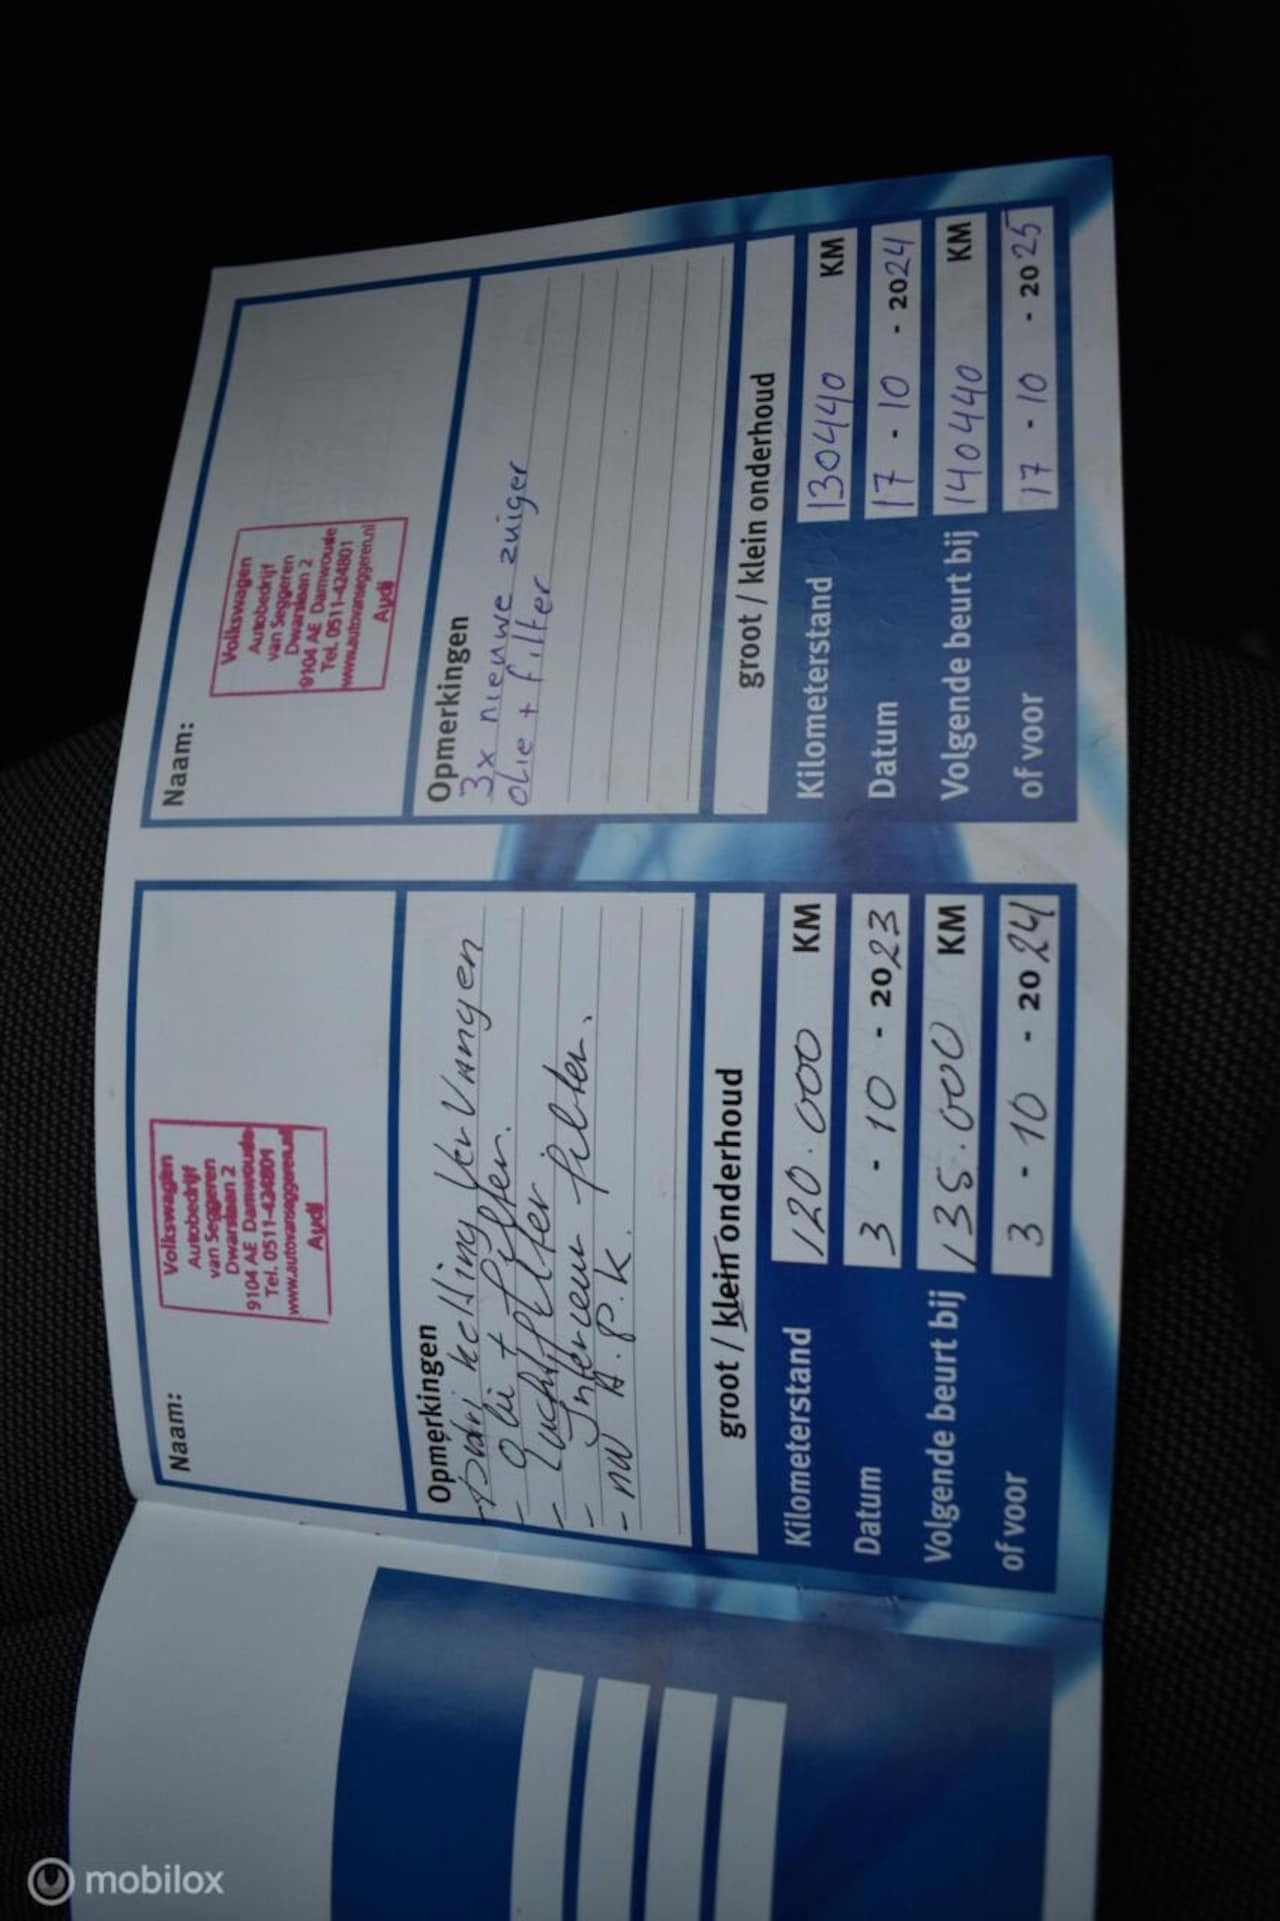 Naam:
Volkswagen
Autobedrijf
van Seggeren
Dwarslaan 2
9104 AE Damwoude
Tel. 0511-424801
www.autovanseggeren.nl
Audi
Opmerkingen
ketting vervangen
- olie + filter.
- Luchtfilter
- Interieur filter.
- nw A.P.K.
groot / klein onderhoud
Kilometerstand 120.000 KM
Datum 3 - 10 - 2023
Volgende beurt bij 135.000 KM
of voor 3 - 10 - 2024
Naam:
Volkswagen
Autobedrijf
van Seggeren
Dwarslaan 2
9104 AE Damwoude
Tel. 0511-424801
www.autovanseggeren.nl
Audi
Opmerkingen
3x nieuwe zuiger
olie + filter
groot / klein onderhoud
Kilometerstand 130440 KM
Datum 17 - 10 - 2024
Volgende beurt bij 140440 KM
of voor 17 - 10 - 2025
mobilox